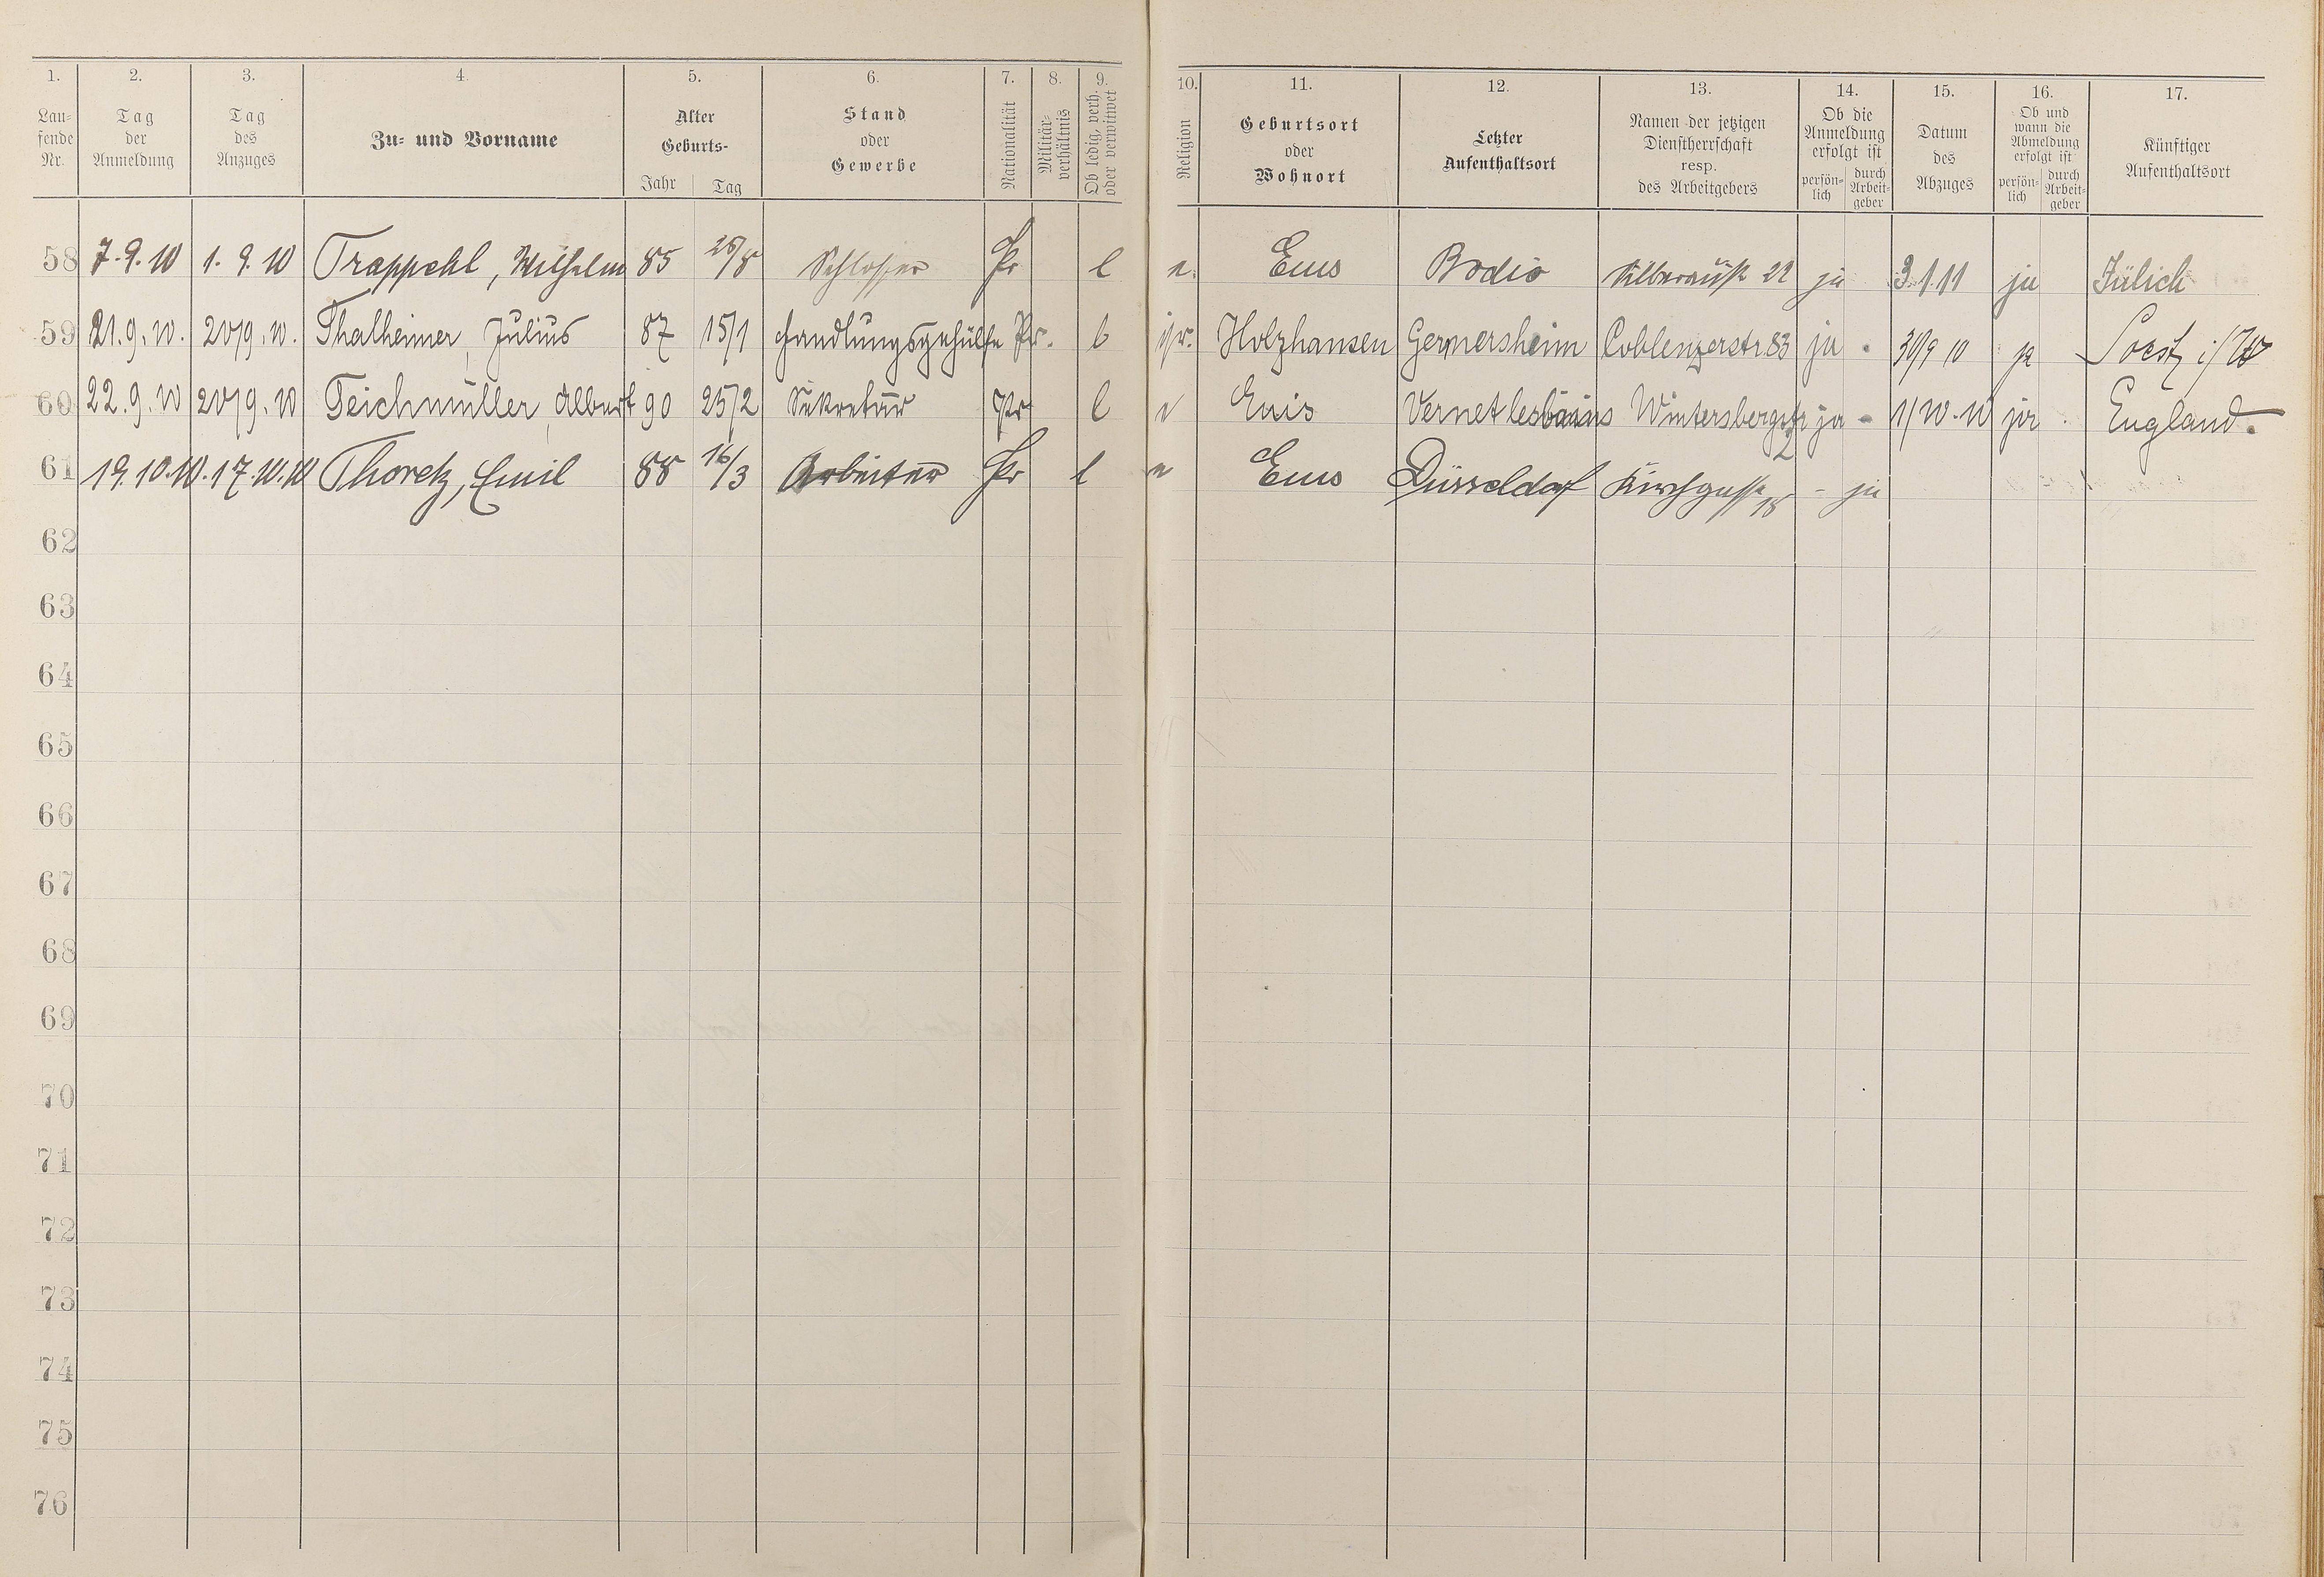 1. 2. 3. 4. 5. 6. 7. 8. 9. 10. 11. 12. 13. 14. 15. 16. 17.
Lau-
fende
Nr.
Tag
der
Anmeldung
Tag
des
Anzuges
Zu- und Vorname
Alter
Geburts-
Jahr Tag
Stand
oder
Gewerbe
Nationalität
Militär-
verhältnis
Ob ledig, verh.
oder verwitwet
Religion
Geburtsort
oder
Wohnort
Letzter
Aufenthaltsort
Namen der jetzigen
Dienstherrschaft
resp.
des Arbeitgebers
Ob die
Anmeldung
erfolgt ist
persön-
lich
durch
Arbeit-
geber
Datum
des
Abzuges
Ob und
wann die
Abmeldung
erfolgt ist
persön-
lich
durch
Arbeit-
geber
Künftiger
Aufenthaltsort
58 7.9.10 1.9.10 Trappehl, Wilhelm 85 26/8 Schlosser Pr l e. Ems 22 ja 3.1.11 ja Jülich
59 21.9.10. 20/9.10. Thalheimer, Julius 87 15/1 Handlungsgehülfe Pr. l isr. Holzhausen Germersheim Coblenzerstr 83 ja - 30/9 10 ja Soest i/W
60 22.9.10 20/9.10 Teichmüller, Albert 90 25/2 Sekretär Pr l e Ems Vernet lesbains Wintersbergstr 2 ja - 1/10.10 ja . England.
61 19.10.10. 17.10.10 Thoretz, Emil 88 16/3 Arbeiter Pr l e Ems Düsseldorf Kirchgasse 18 - ja
62
63
64
65
66
67
68
69
70
71
72
73
74
75
76